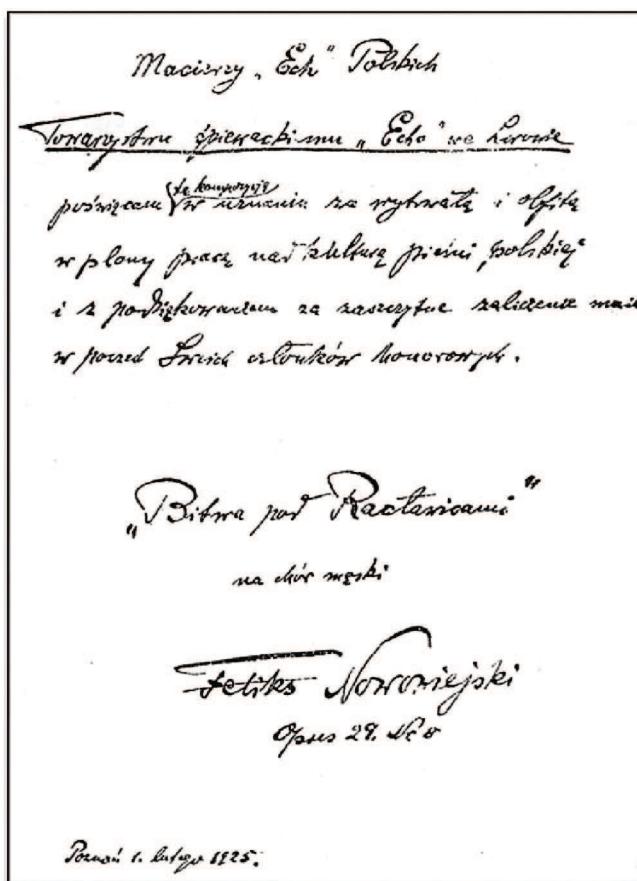 Macierzy „Ech” Polskich
Towarzystwu śpiewackiemu „Echo” we Lwowie
tę kompozycję
poświęcam w uznaniu za wytrwałą i obfitą
w plony pracę nad kulturą pieśni polskiej
i z podziękowaniem za zaszczytne zaliczenie mnie
w poczet Swoich członków honorowych.
„Bitwa pod Racławicami”
na chór męski
Feliks Nowowiejski
Opus 29. No
Poznań 1. lutego 1925.